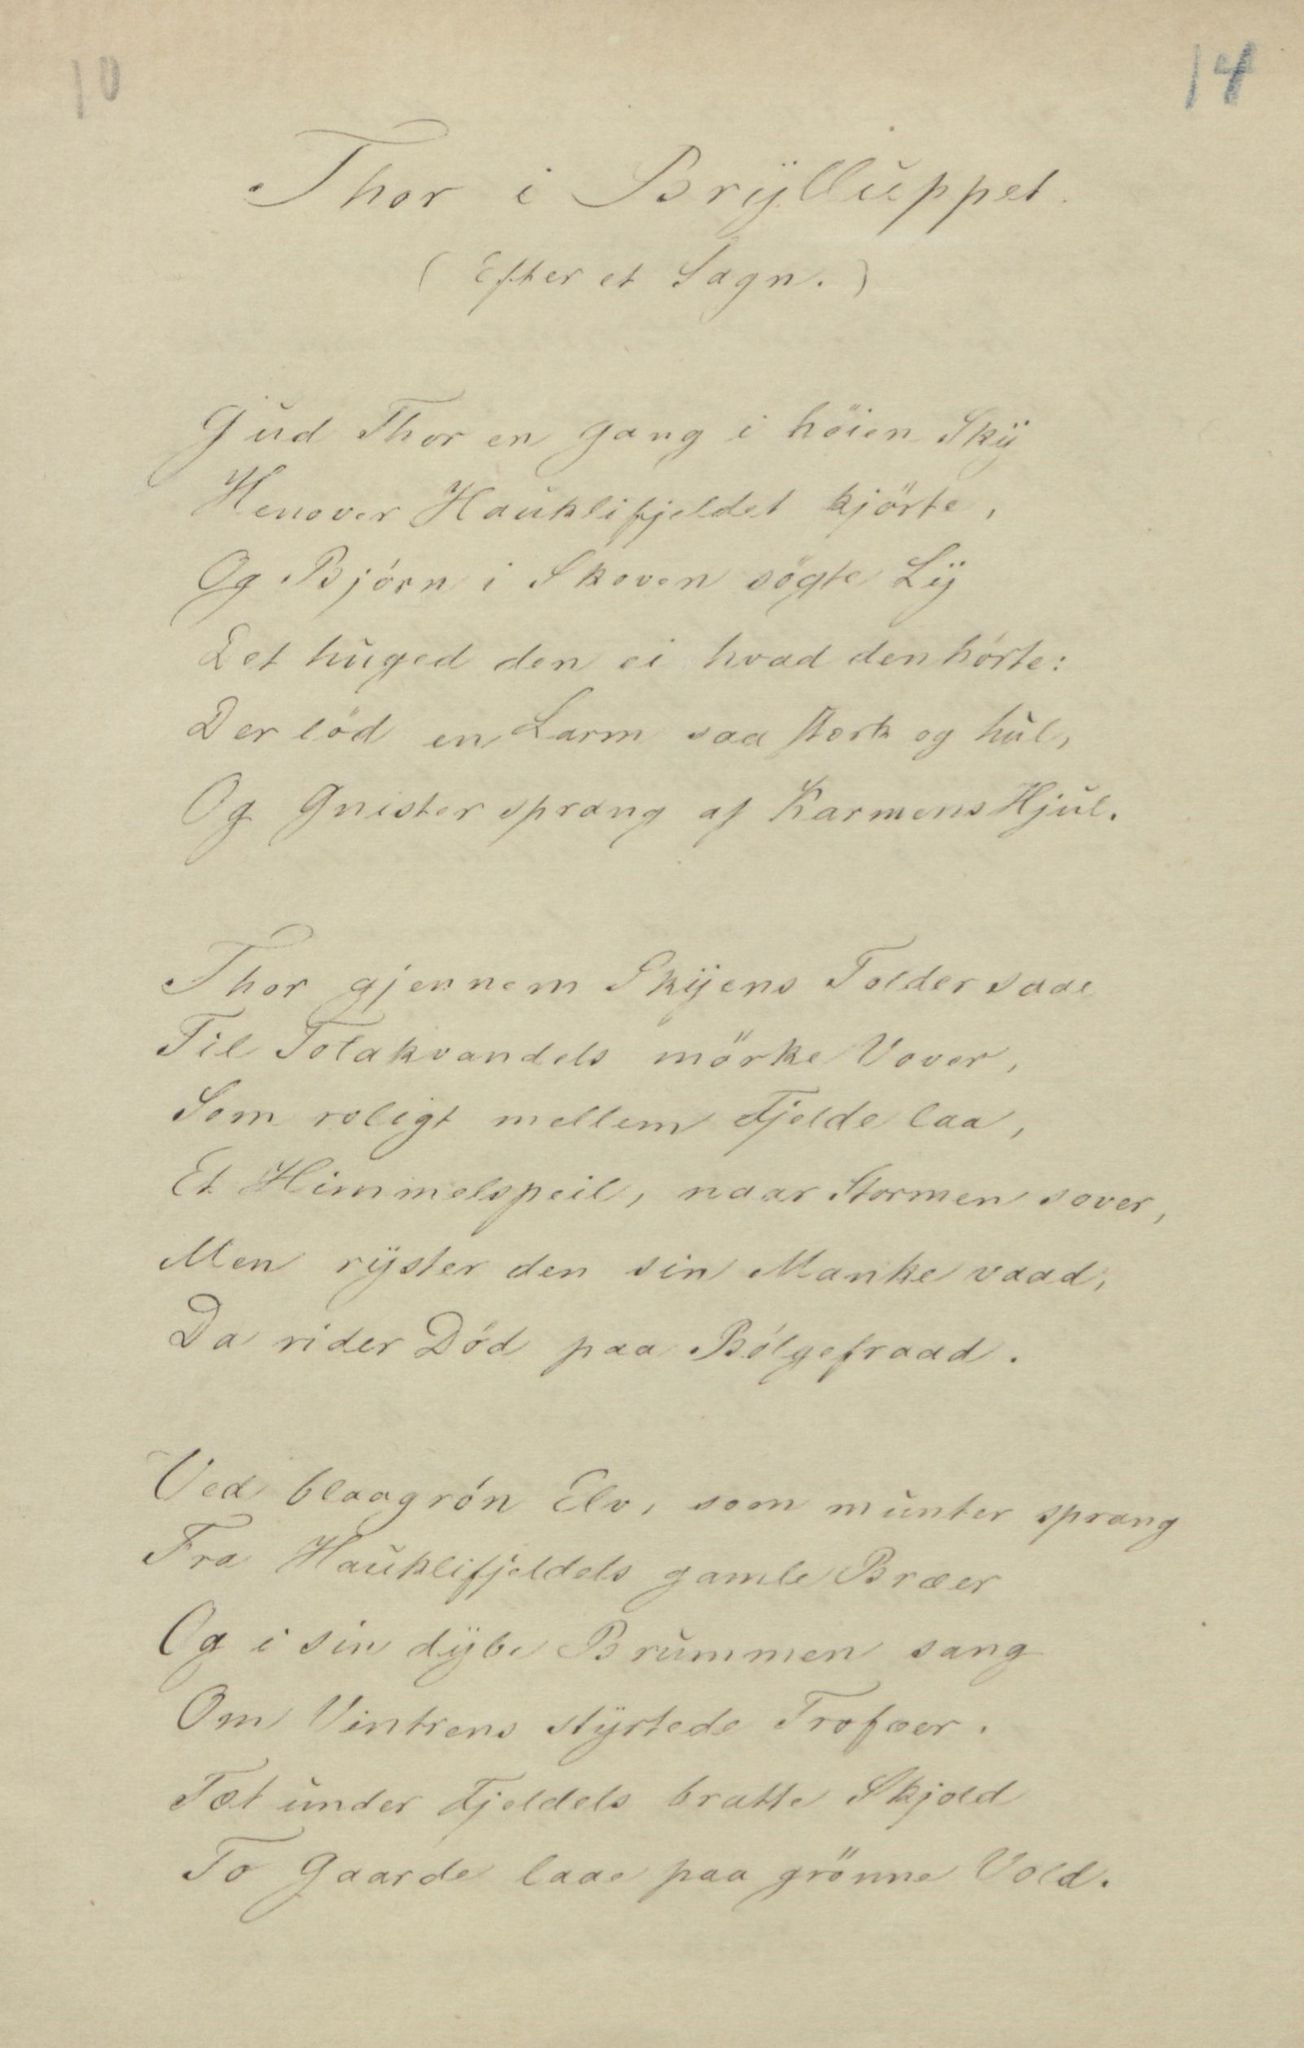 10
14
Thor i Brÿlluppet.
(Efter et Sagn.)
Gud Thor en Gang i höien Skÿ
Henover Hauklifjeldet kjörte,
Og Bjórn i Skoven sögte Lÿ
Det huged den ei hvad den hórte:
Der löd en Larm saa stærk og hul,
Og Gnister sprang af Karmens Hjul.
Thor gjennem Skÿens Folder saae
Til Totakvandets mörke Vover,
Som roligt mellem Fjelde laa,
Et Himmelspeil, naar Stormen sover,
Men rÿster den sin Manke vaad,
Da rider Död paa Bólgefraad.
Ved blaagrón Elv, som munter sprang
Fra Hauklifjeldets gamle Bræer
Og i sin dÿbe Brummen sang
Om Vintrens stÿrtede Trofæer.
Tæt under Fjeldets bratte Skjold
To Gaarde laae paa grönne Vold.